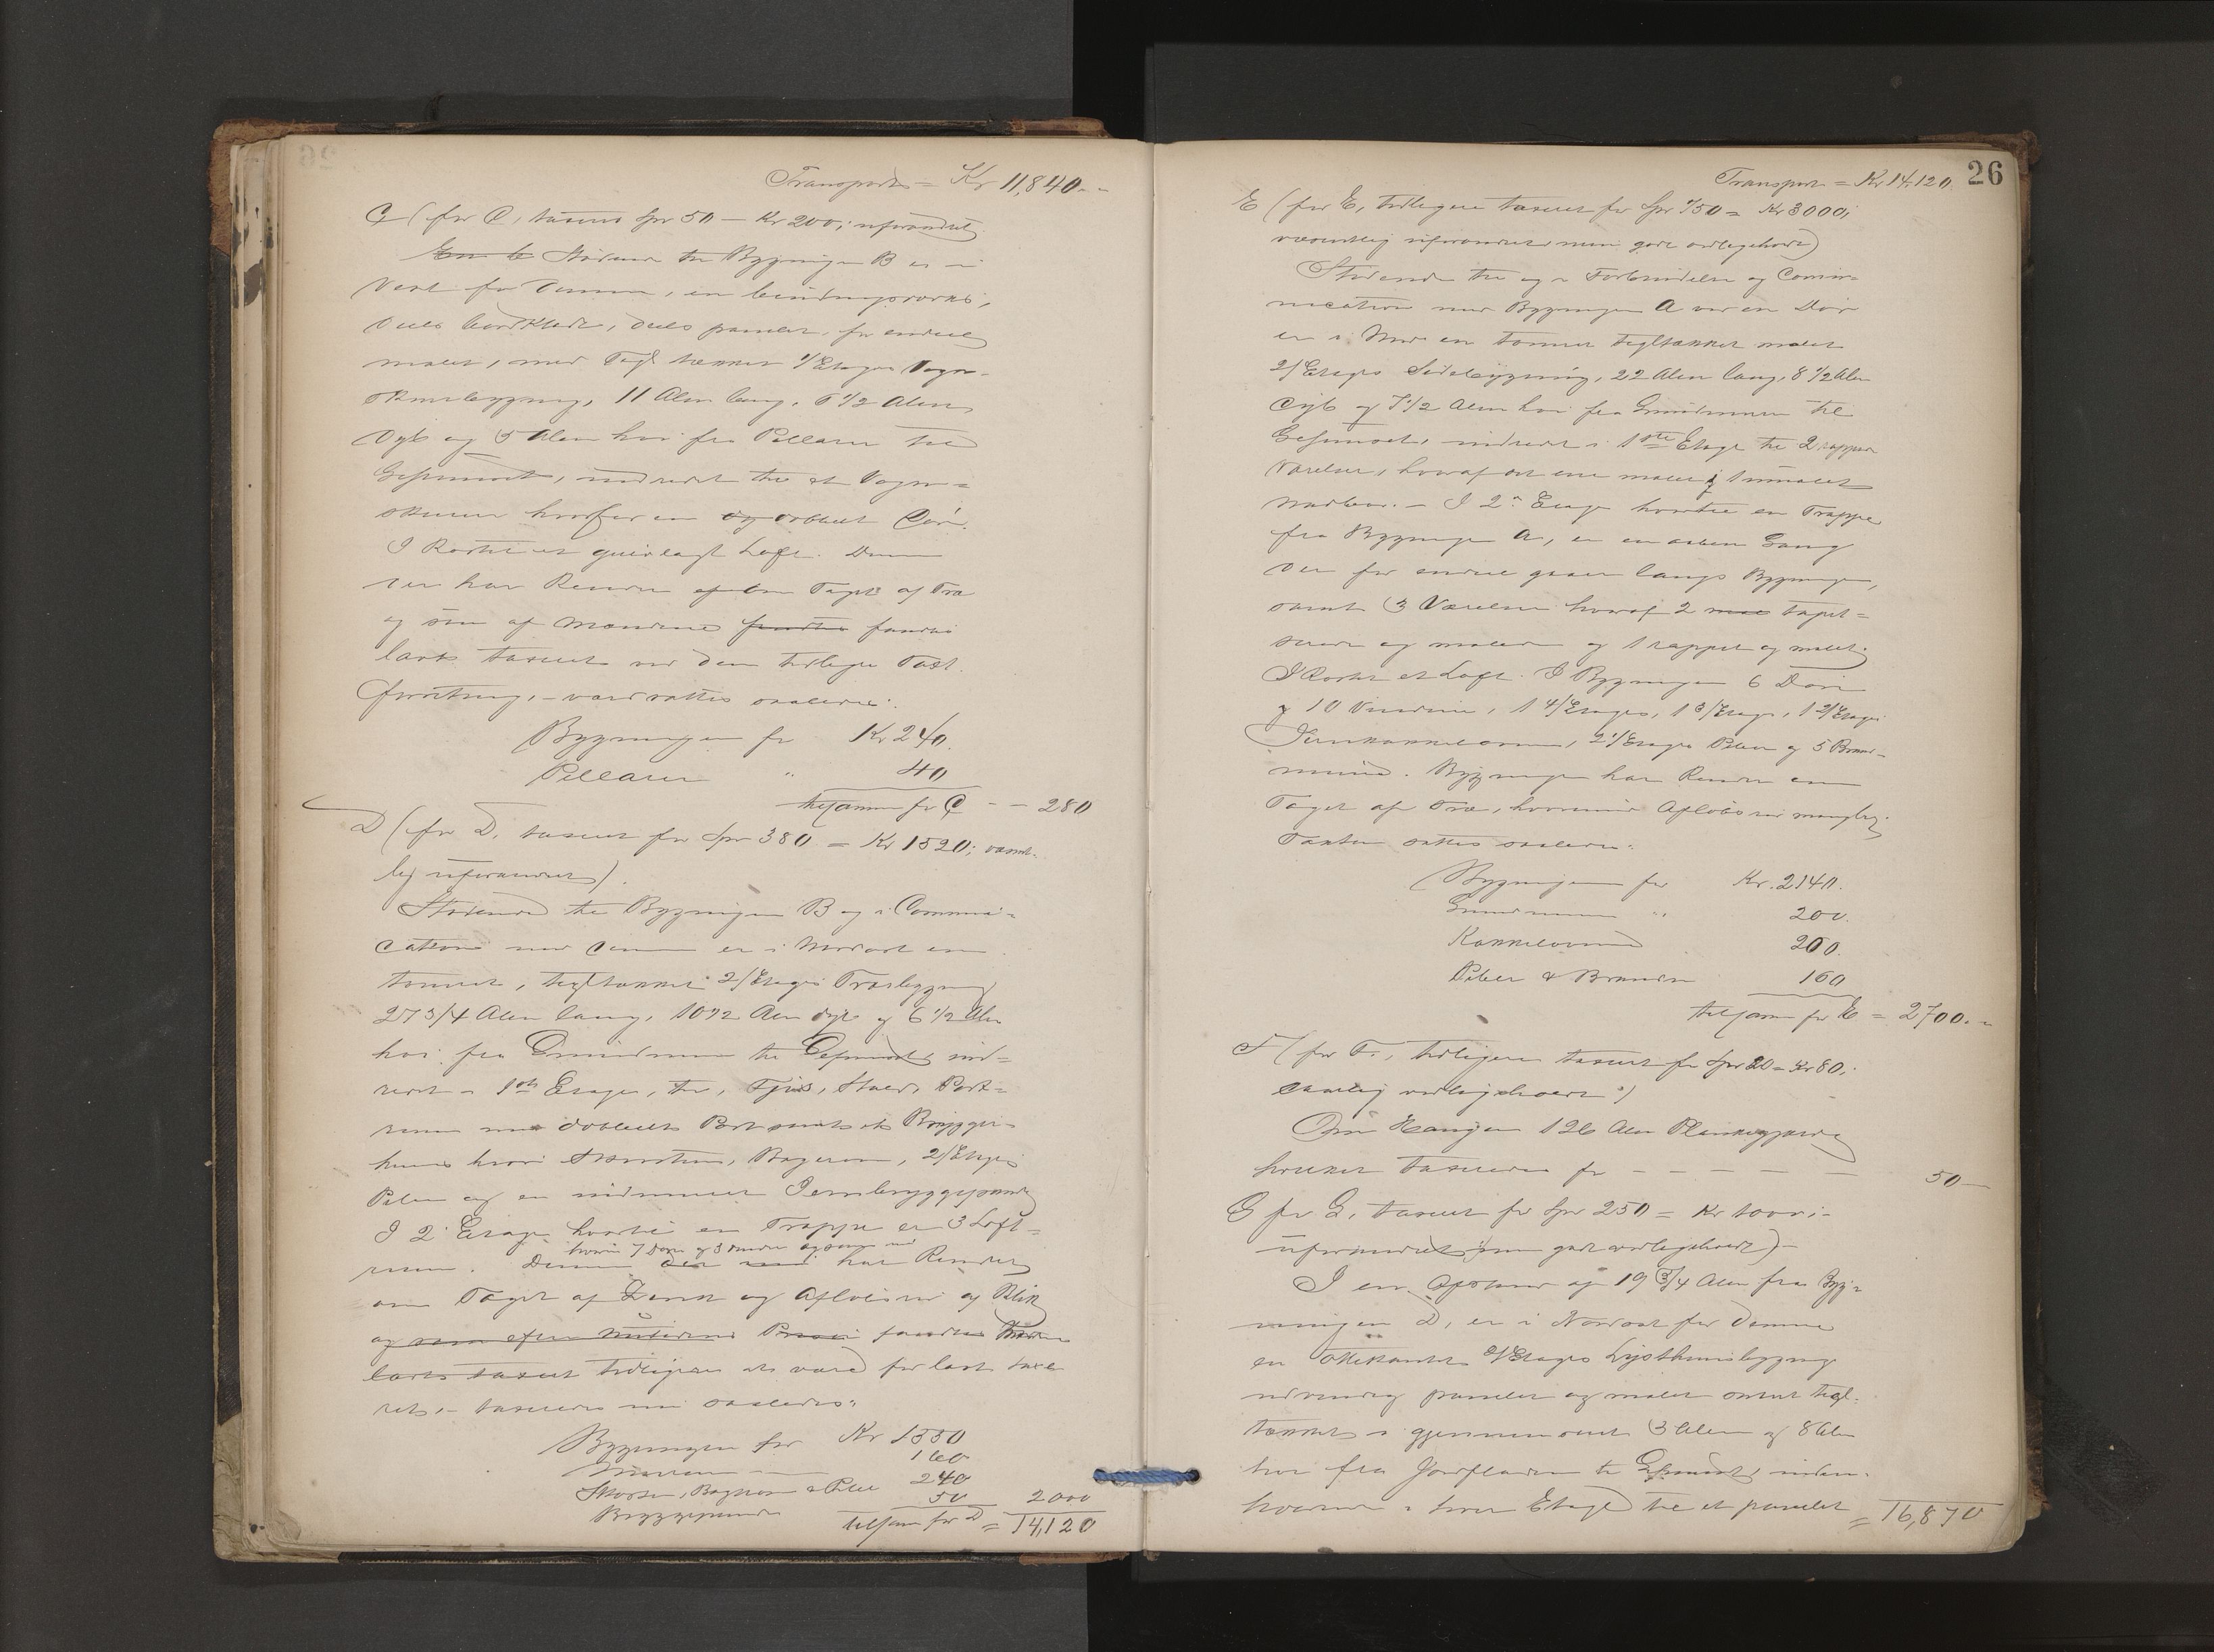 Transport = Kr 11,840. -
C (for C, taxeret Spr 50 - Kr 200; uforandret
Stødende til Bygningen B er i
Vest for denne, en bindingsværks,
deels bordklædt, deels panelet, for endeel
malet, med Tagl tækket 1/Etages Vogn-
skuursbygning, 11 Alen lang, 6 1/2 Alen
dyb og 5 Alen høi fra Pillarer til
Gesimset, indredet til et Vogn-
skuur hvorfor en dobbelt Dør.
I Røstet et gulvlagt Loft. Denne
der har Render om Taget af Træ
og som af Mændene fandtes fandtes
lavt taxeret ved den tidligere Taxt
forretning, - værdsættes saaledes:
Bygningen for Kr 240.
Pillarer " 40
tilsammen for C - - 280
D (for D, taxeret for Spr 380 = Kr 1520; væsent-
lig uforandret).
Stødende til Bygningen B og i Communi-
cation med denne er i Nordost en
tømret, tegltækket 2/Etages Træbygning
27 3/4 Alen lang, 10 1/2 Alen dyb og 6 1/2 Alen
høi fra Grundmuren til Gesimset, ind-
redet i 1ste Etage, til, Fjøs, Stald, Port-
rum med dobbelt Port samt et Bryggers-
huus hvori Skorsteen, Bagerovn, 2/Etages
Piber og en indmuret Jernbryggepande
I 2 Etage hvortil en Trappe er 3 Loft-
hvori 7 Døre og 3 Vinduer
rum. Denne har Render
om Taget af Zink og Afløbsrør af Blik
og som efter fandtes
lavt taxeret tidligere at være for lavt taxe-
ret, - taxeres nu saaledes:
Bygningen for Kr 1550
Muren 160
Skorsten, Bagerovn & Piber 240
Bryggepande 50 2000
tilsam for D = 14,120
26
Transport = Kr 14,120.
E (for E, tidligere taxeret for Spr 750 = Kr 3000;
væsentlig uforandret men godt vedligeholdt)
Stødende til og i Forbindelse og Commu-
nication med Bygningen A ved en Dør
er i Nord en tømret tegltækket malet
2/Etages Sidebygning, 22 Alen lang, 8 1/2 Alen
dyb og 7 1/2 Alen høi fra Grundmuren til
Gesimset, indredet i 1ste Etage til 2 rappede
Værelser, hvoraf det ene malet & 1 umalet
Madbod. - I 2n Etage hvortil en Trappe
fra Bygningen A, er en aaben Gang
der for endeel gaaer langs Bygningen,
samt 3 Værelser hvoraf 2 tapet-
serede og malede og 1 rappet og malet.
I Røstet et Loft. I Bygningen 6 Døre
og 10 Vinduer, 1 4/Etages, 1 3/Etages, 1 2/Etages
Jernkakkelovne, 2 1/Etages Piber og 5 Brand-
mure. Bygningen har Render om
Taget af Træ, hvorimod Afløbsrør mangler.
Taxten sættes saaledes:
Bygningen for Kr. 2140.
Grundmuren " 200.
Kakkelovne 200.
Piber & Brandm 160
tilsamm for E = 2700. -
F (for F., tidligere taxeret for Spr 20 = Kr 80;
daarlig vedligeholdt.)
Om Haugen 126 Alen Plankegjærde
hvilket taxeres for - - - - - 50 -
G for G, taxeret for Spr 250 = Kr 1000; -
uforandret men godt vedligeholdt) -
I en Afstand af 19 3/4 Alen fra Byg-
ningen D, er i Nordost for denne
en ottekantet 2/Etages Lysthuusbygning
udvendig panelet og malet samt tegl-
tækket i gjennemsnit 3 Alen og 8 Alen
høi fra Jordfladen til Gesimset, inden-
hvorende i hver Etage til et panelet
= 16,870